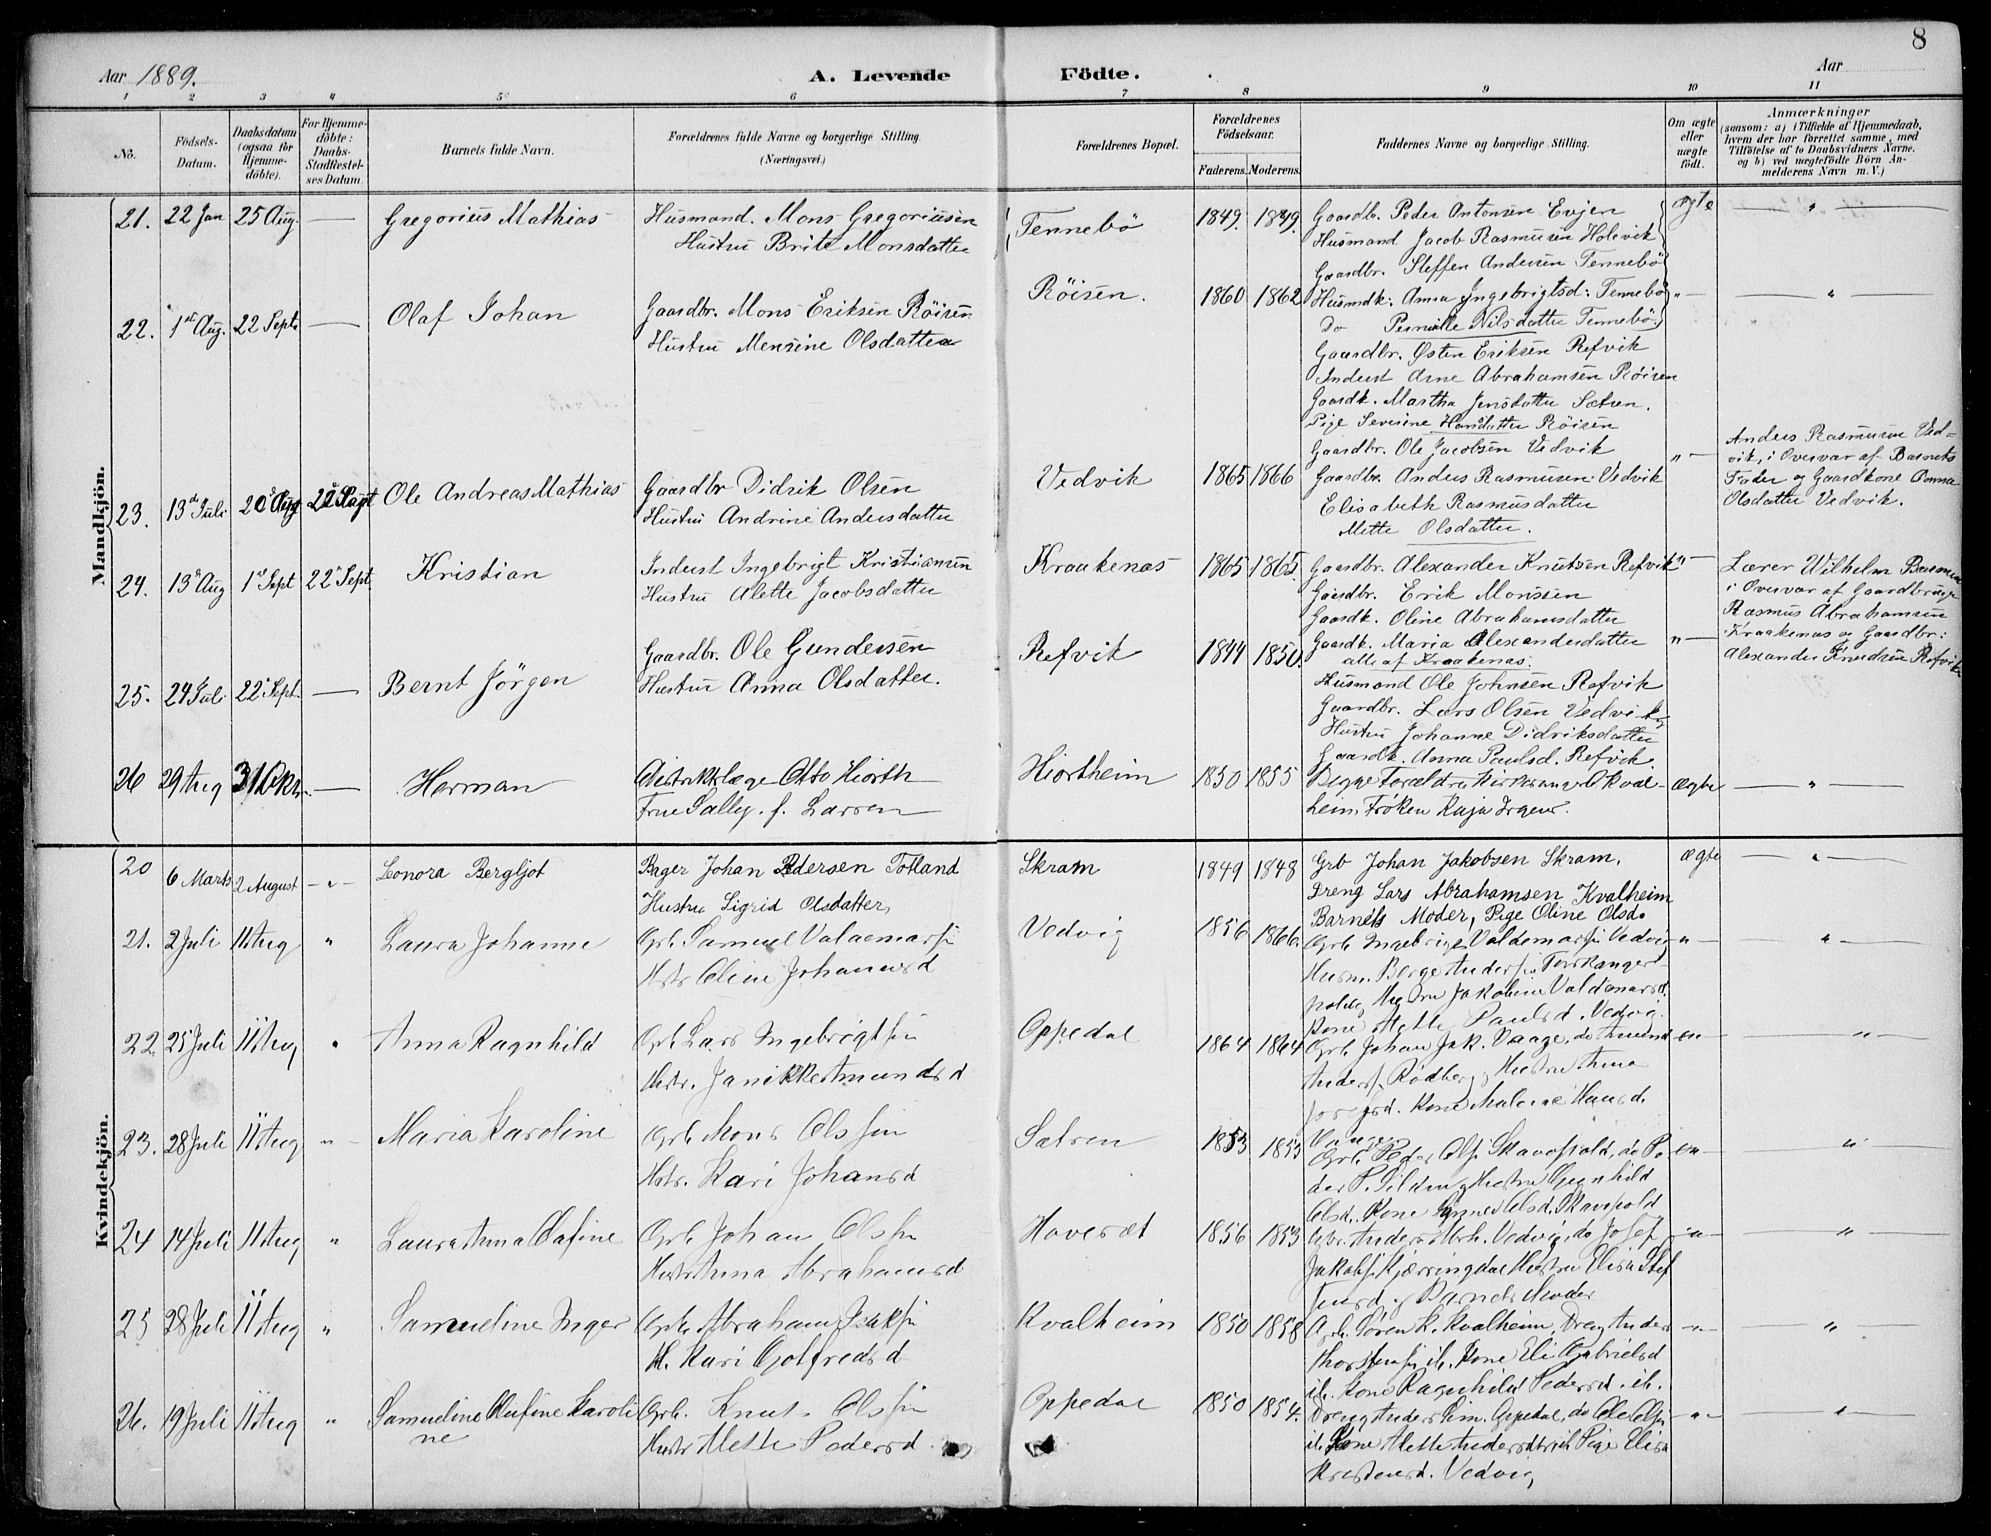 8
Aar 1889.
A. Levende
Födte.
Aar
1 2 3 4 5 6 7 8 9 10 11
No.
Födsels-Datum.
Daabsdatum (ogsaa for Hjemme-döbte).
For Hjemme-döbte: Daabs-Stadfæstel-ses Datum.
Barnets fulde Navn.
Forældrenes fulde Navne og borgerlige Stilling.
(Næringsvei.)
Forældrenes Bopæl.
Forældrenes Födselsaar.
Faderens. Moderens.
Faddernes Navne og borgerlige Stilling.
Om ægte eller uægte födt.
Anmærkninger
(saasom: a) i Tilfælde af Hjemmedaab, hvem der har forrettet samme, med Tilföielse af to Daabsvidners Navne, og b) ved uægtefödte Börn Anmelderens Navn m. V.)
Mandkjön.
21. 22 Jan 25 Aug. — Gregorius Mathias
Husmand. Mons Gregoriusen
Hustru Brite Monsdatter
Tennebö 1849. 1849.
Gaardbr. Peder Antonsen Evjen
Husmand Jacob Rasmusen Holevik
Gaardbr. Steffen Andersen Tennebö
Husmdk. Anna Ingebrigtsd: Tennebö
Do Pernille Nilsdatter Tennebö
ægte — " —
22. 1st Aug. 22 Sept. — Olaf Johan
Gaardbr. Mons Eriksen Röisen
Hustru Mensine Olsdatter
Röisen. 1860 1862
Gaardbr. Østen Eriksen Refvik
Inderst Arne Abrahamsen Röisen
Gaardk. Martha Jensdatter Sætren.
Pige Severine Hansdatter Röisen
" — — " —
23. 13d Juli 20d Aug 22d Sept Ole Andreas Mathias
Gaardbr Didrik Olsen
Hustru Andrine Andersdatter
Vedvik 1865 1866
Gaardbr. Ole Jacobsen Vedvik
Gaardbr. Anders Rasmusen Vedvik
Elisabeth Rasmusdatter
Mette Olsdatter.
" —
Anders Rasmusen Ved-
vik, i Overvær af Barnets
Fader og Gaardkone Anna
Olsdatter Vedvik.
24. 13d Aug 1st Sept 22d Sept. Kristian
Inderst Ingebrigt Kristiansen
Hustru Alette Jacobsdatter
Kraakenæs 1865 1865.
Gaardbr. Alexander Knutsen Refvik
Gaardbr. Erik Monssen
Gaardk. Oline Abrahamsdatter
Gaardk. Maria Alexandersdatter
alle af Kraakenæs.
" —
Lærer Wilhelm
i Overvær af Gaardbruger
Rasmus Abrahamsen
Kraakenæs og Gaardbr:
Alexander Knudsen Refvik
25. 24 Juli 22 Sept. — Bernt Jörgen
Gaardbr. Ole Gundersen
Hustru Anna Olsdatter.
Refvik 1844 1850.
Husmand Ole Johnsen Refvik
Gaardbr. Lars Olsen Vedvik og
Hustru Johanne Didriksdatter
Gaardk. Anna Paulsd. Refvik.
" —
26 29 Aug 31 Okt. — Herman
Distriktslæge Otto Hiorth
Frue Sally f. Larsen
Hiortheim 1850 1855
Begge Forældre, Kirkesanger Kval-
heim Frøken Kaja Irgens.
ægte — " —
Kvindekjön.
20 6 Marts 2 August — " — Leonora Bergljot
Bager Johan Pedersen Totland
Hustru Sigrid Olsdatter
Skram 1849 1848
Grb Johan Jakobsen Skram.
Dreng Lars Abrahamsen Kvalheim
Barnets Moder, Pige Oline Olsd.
ægte — " —
21. 2 Juli 11 Aug " Laura Johanne
Grb Samuel Valdemarsen
Hstr Oline Johannesd
Vedvig 1856 1866.
Grb Ingebrigt Valdemars Vedvig
Husm. Berge Anders
Hustru Jakobine Valdemarsd.
Kone Mette Paulsd. Vedvig.
" — — " —
22. 25 Juli 11 Aug " Anna Ragnhild
Grb Lars Ingebrigtsen
Hstr. Janikke Amundsd
Oppedal 1864 1864
Grb Johan Jak. Vaage, do Amund
Anders Rödberg, Hustru Anna
Kone Malene Hansd.
Vaage
— " — "
23. 28 Juli 11 Aug — " — Maria Karoline
Grb Mons Olssen
Hstr. Kari Johansd
Sætren 1853 1853
Grb Peder Ols Skavøpold, do Pe
der P. Silden, Hustru Gunhild
Olsd. Kone Olsd. Skavøpold
— " — "
24 14 Juli 11 Aug " Laura Anna Olafine
Grb Johan Olssen
Hustr Anna Abrahamsd
Hoveræt 1856 1853
Gbr Anders Abrh. Vedvig, do Josef
Jakobs Kjærringdal Hustru Elisa Stef
fensd og Barnets Moder
— " — "
25 28 Juli 11 Aug " Samueline Inger
Grb Abraham Isaksen
H. Kari Gotfredsd
Kvalheim 1850 1858
Grb. Søren K. Kvalheim, Dreng Anders
Thorstens ib. Kone Eli Gabrielsd
ib. Kone Ragnhild Pedersd. ib.
— " — "
26. 19 Juli 11 Aug " Samueline Olufine Karoli
ne
Grb. Knut Olssen
Hustr Mette Pedersd.
Oppedal 1850 1854.
Dreng Anders Sim. Oppedal, do Ole Ols
ib. Kone Alette Andersdtr ib. Pige Elisa
Kristensd. Vedvig
— " — — " —